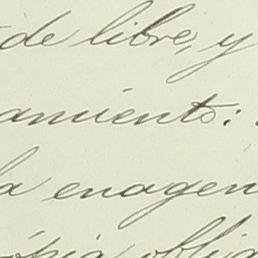 de libre, y
amiento:
la enagen
ópia oblig